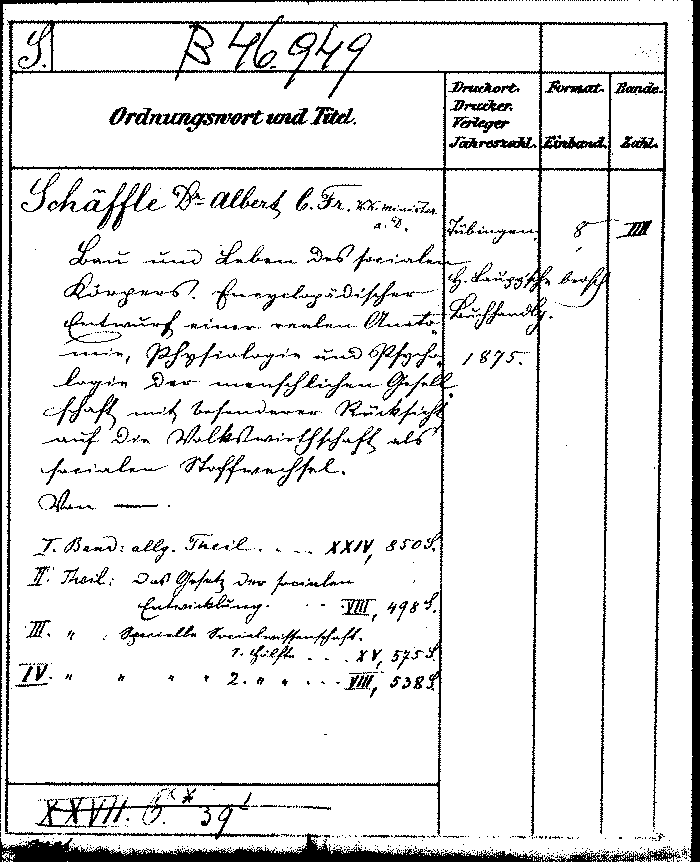 S.
B 46.949
Ordnungswort und Titel.
Druckort.
Drucker.
Verleger
Jahreszahl.
Format.
Einband.
Bände-
Zahl.
Schäffle Dr. Albert E. Fr. k.k. Minister
a. D.
Bau und Leben des socialen
Körpers. Encyclopädischer
Entwurf einer realen Anato-
mie, Physiologie und Psycho-
logie der menschlichen Gesell-
schaft mit besonderer Rücksicht
auf die Volkswirthschaft als
socialen Stoffwechsel.
Von —.
Tübingen.
H. Laupp'sche
Buchhandlg.
1875.
8°
brosch
IIII
I. Band: allg. Theil. . . . . XXIV, 850 S.
II. Theil: Das Gesetz der socialen
Entwicklung. . . VIII, 498 S.
III. " : Specielle Socialwissenschaft.
1. Hälfte . . . XV, 575 S.
IV. " " " " 2. " " . . . VIII, 538 S.
XXVII. 39